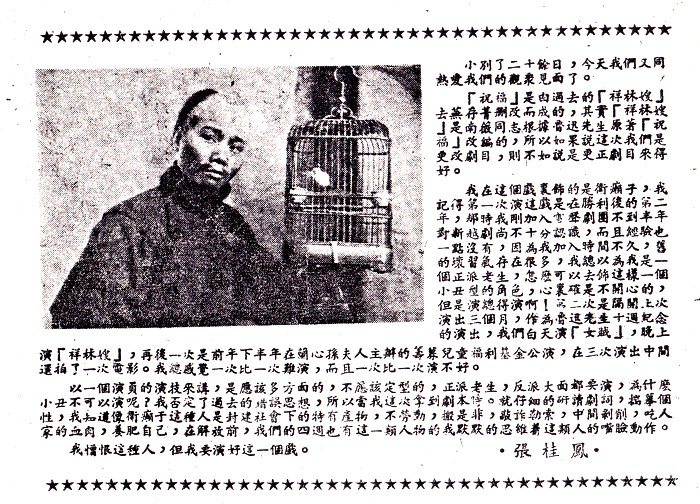 小別了二十餘日，今天我們又同
熱愛我們的觀衆見面了。
『祝福』是由過去的『祥林嫂』
去蕪存菁刪改而成的，其實『祥林嫂
』是南薇同志根據魯迅先生原著『祝
福』改編的，所以如果說這次我們是
更改劇目，則不如說是更正劇目來得
好。
我在這個戲裏飾的是衛癩子，我
記得第一次演這戲是在勝利後的第二
年，那時我剛加入雪聲劇團不到半年
對新越劇尚不十分認識，而且經驗也
一點沒有，因為我加入時間不久，舊
的壞習氣存在很多，我總以為我是一
個正派老生，怎麽可以去飾這樣一個
小丑型的角色，心裏確是不開心的，
但是演總得演啊！第二次是隔開上次
演出三個月，作為魯迅先生十週紀念
的演出，我們白天演『女賊』，晚上
演『祥林嫂』，再後一次是前年下半年在蘭心孫夫人主辦的籌募兒童福利基金公演，在三次演出中間
還拍了一次電影。我總感覺一次比一次難演，而且一次比一次演不好。
以一個演員的演技來講，是應該多方面的，不應該定型的，正派老生，反派大面都要演，為什麽
小丑不可以演呢？我否定了過去的錯誤思想，所以當我這次拿到劇本時。就仔細的研讀劇詞，揣摹個
性，我知道像衛癩子這種人是封建社會下的特有產物，不勞動，搬是非，敲詐勒索，中間剝削，吃人
家的血肉，養肥自己，在解放前，我們的四週也有這一類人物的我默默的思維着這類人的嘴臉動作。
我憎恨這種人，但我要演好這一個戲。
·張桂鳳·